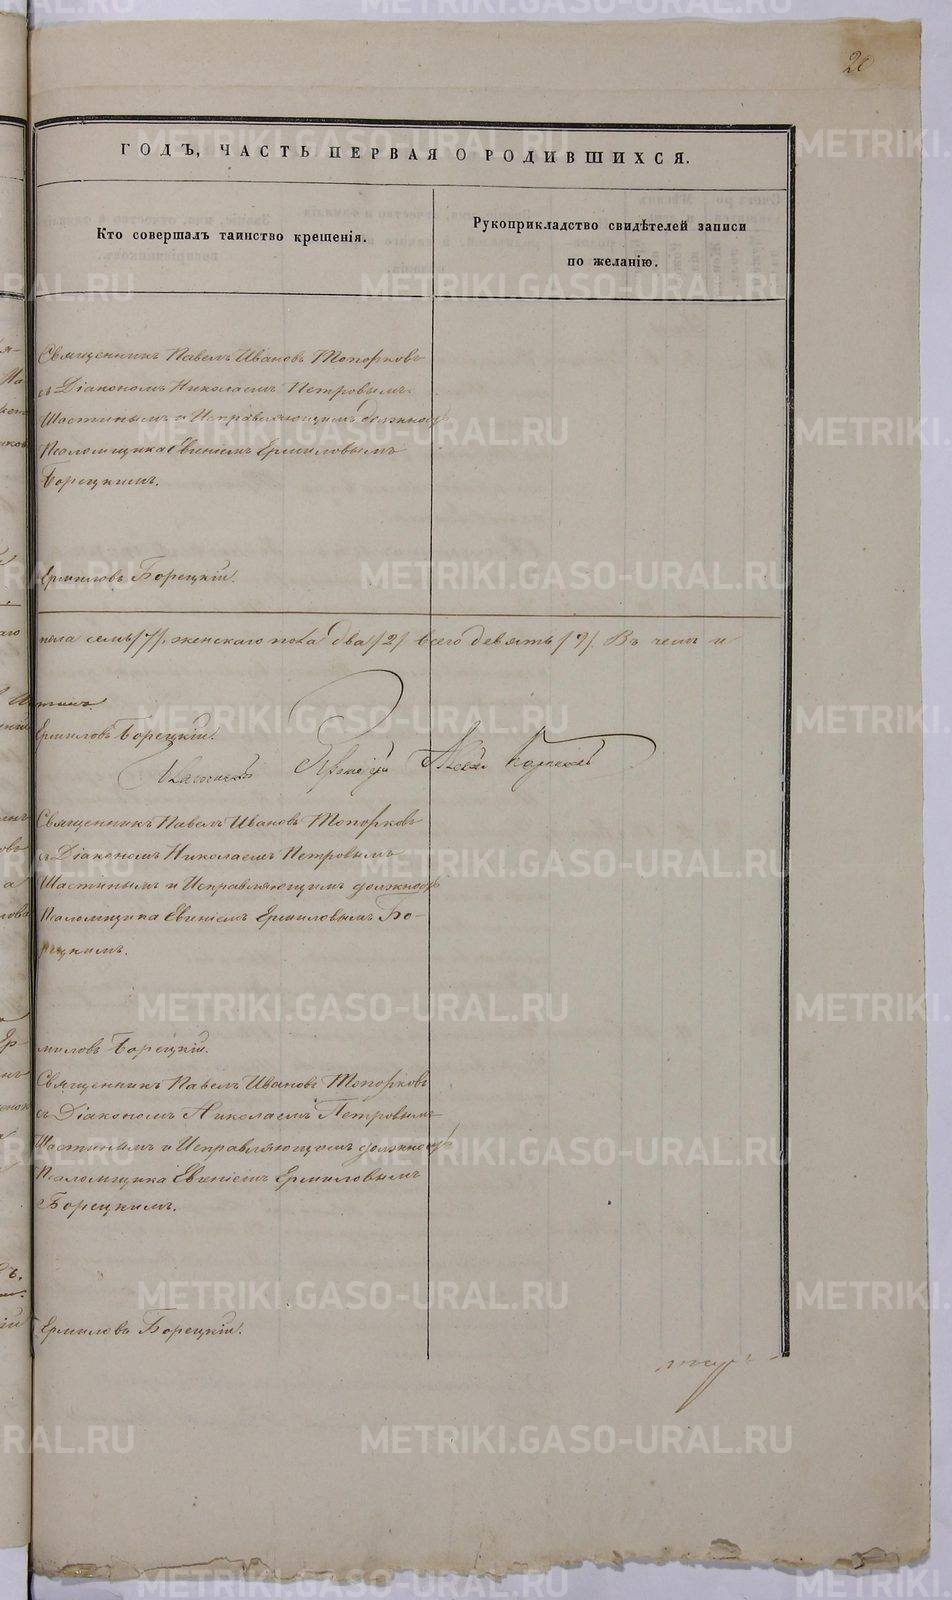 20
ГОДЪ, ЧАСТЬ ПЕРВАЯ О РОДИВШИХСЯ.
Кто совершалъ таинство крещенія.
Рукоприкладство свидѣтелей записи
по желанію.
Священникъ Павелъ Ивановъ Топорковъ
съ Діакономъ Николаемъ Петровымъ
Шастинымъ и Исправляющимъ должность
Псаломщика Евгеніемъ Ермиловымъ
Борецкимъ.
Ермиловъ Борецкій.
пола семь /7/. женскаго пола два /2/ всего девять /9/. Въ чемъ и
Ермиловъ Борецкій.
Священникъ Павелъ Ивановъ Топорковъ
съ Діакономъ Николаемъ Петровымъ
Шастинымъ и Исправляющимъ должность
Псаломщика Евгеніемъ Ермиловымъ Бо-
рецкимъ.
миловъ Борецкій.
Священникъ Павелъ Ивановъ Топорковъ
съ Діакономъ Николаемъ Петровымъ
Шастинымъ и Исправляющимъ должность
Псаломщика Евгеніемъ Ермиловымъ
Борецкимъ.
Ермиловъ Борецкій.
METRIKI.GASO-URAL.RU